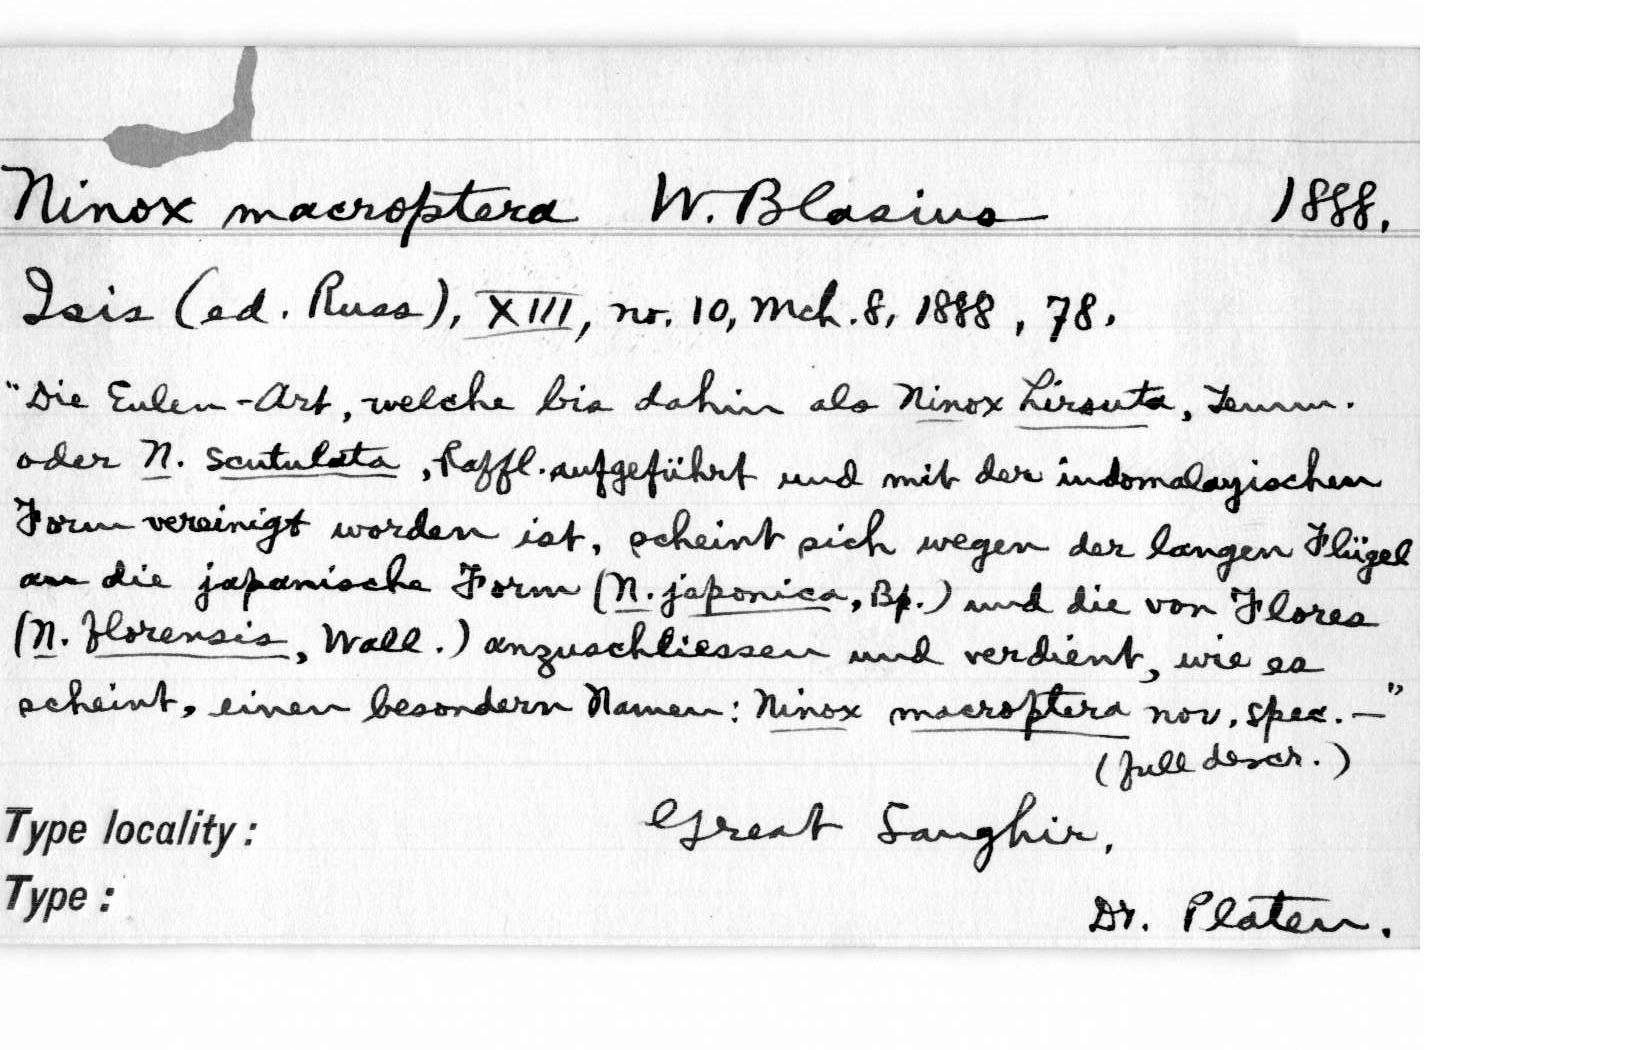 Ninox macroptera W. Blasius 1888.
Isis (ed. Russ), XIII, no. 10, Mch. 8, 1888, 78.
"Die Eulen-Art, welche bis dahin als Ninox hirsuta, Temm.
oder N. scutulata, Raffl. aufgeführt und mit der indomalayischen
Form vereinigt worden ist, scheint sich wegen der langen Flügel
an die japanische Form (N. japonica, Bp.) und die von Flores
(N. florensis, Wall.) anzuschliessen und verdient, wie es
scheint, einen besondern Namen: Ninox macroptera nov. spec. —"
(full descr.)
Type locality: Great Sanghir.
Type: Dr. Platen.